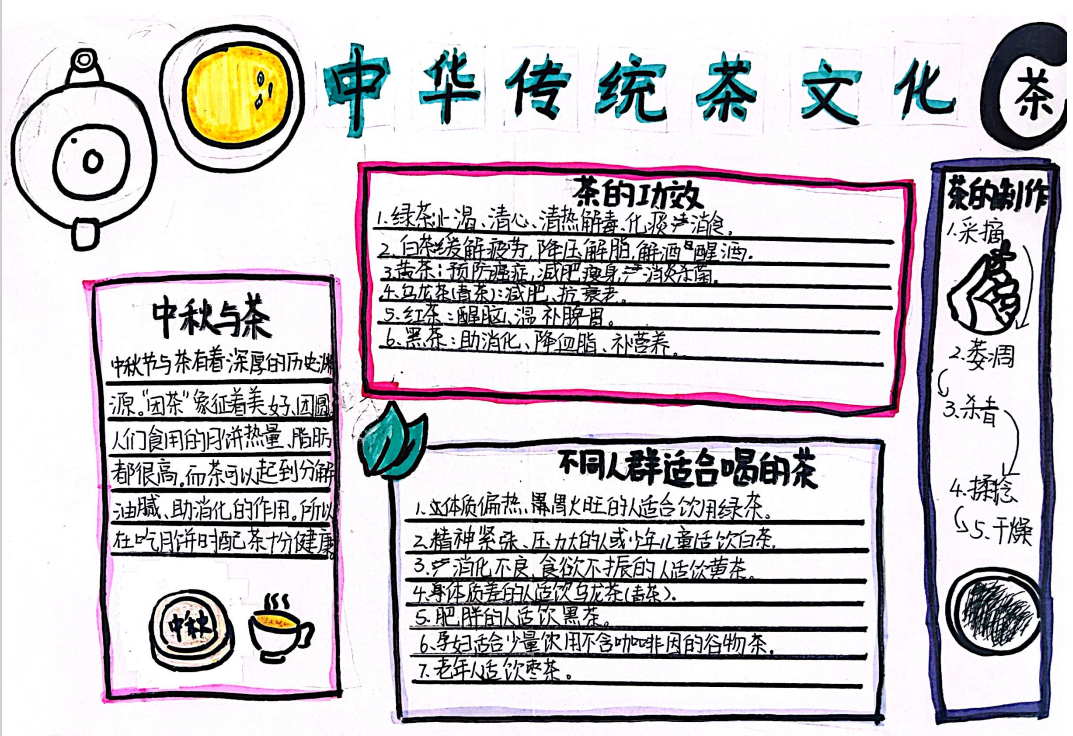 中华传统茶文化
茶
茶的功效
1.绿茶止渴、清心、清热解毒、化痰、消食。
2.白茶:缓解疲劳,降压解脂,解酒醒酒。
3.黄茶:预防癌症,减肥瘦身,消炎杀菌。
4.乌龙茶(青茶):减肥、抗衰老。
5.红茶:醒脑、温补脾胃。
6.黑茶:助消化、降血脂、补营养。
茶的制作
1.采摘
2.萎凋
3.杀青
4.揉捻
5.干燥
中秋与茶
中秋节与茶有着深厚的历史渊
源。“团茶”象征着美好、团圆
人们食用的月饼热量、脂肪
都很高。而茶可以起到分解
油腻、助消化的作用。所以
在吃月饼时配茶十分健康
中秋
不同人群适合喝的茶
1.体质偏热、胃火旺的人适合饮用绿茶。
2.精神紧张、压力大的人或少年儿童适饮白茶。
3.消化不良,食欲不振的人适饮黄茶。
4.身体质差的人适饮乌龙茶(青茶).
5.肥胖的人适饮黑茶。
6.孕妇适合少量饮用不含咖啡因的谷物茶。
7.老年人适饮枣茶。